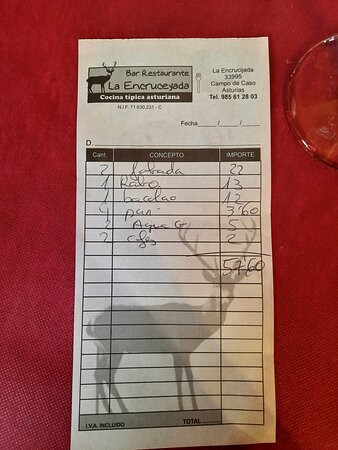 Bar Restaurante
La Encruceyada
Cocina típica asturiana
N.I.F. 71.630.231 - C
La Encrucijada
33995
Campo de Caso
Asturias
Tel. 985 61 28 03
Fecha ____/____/____
D.
Cant. CONCEPTO IMPORTE
2 fabada 22
1 Rabo 13
1 bacalao 12
4 pan 3'60
2 Agua G 5
2 cafes 2
57'60
I.V.A. INCLUIDO TOTAL